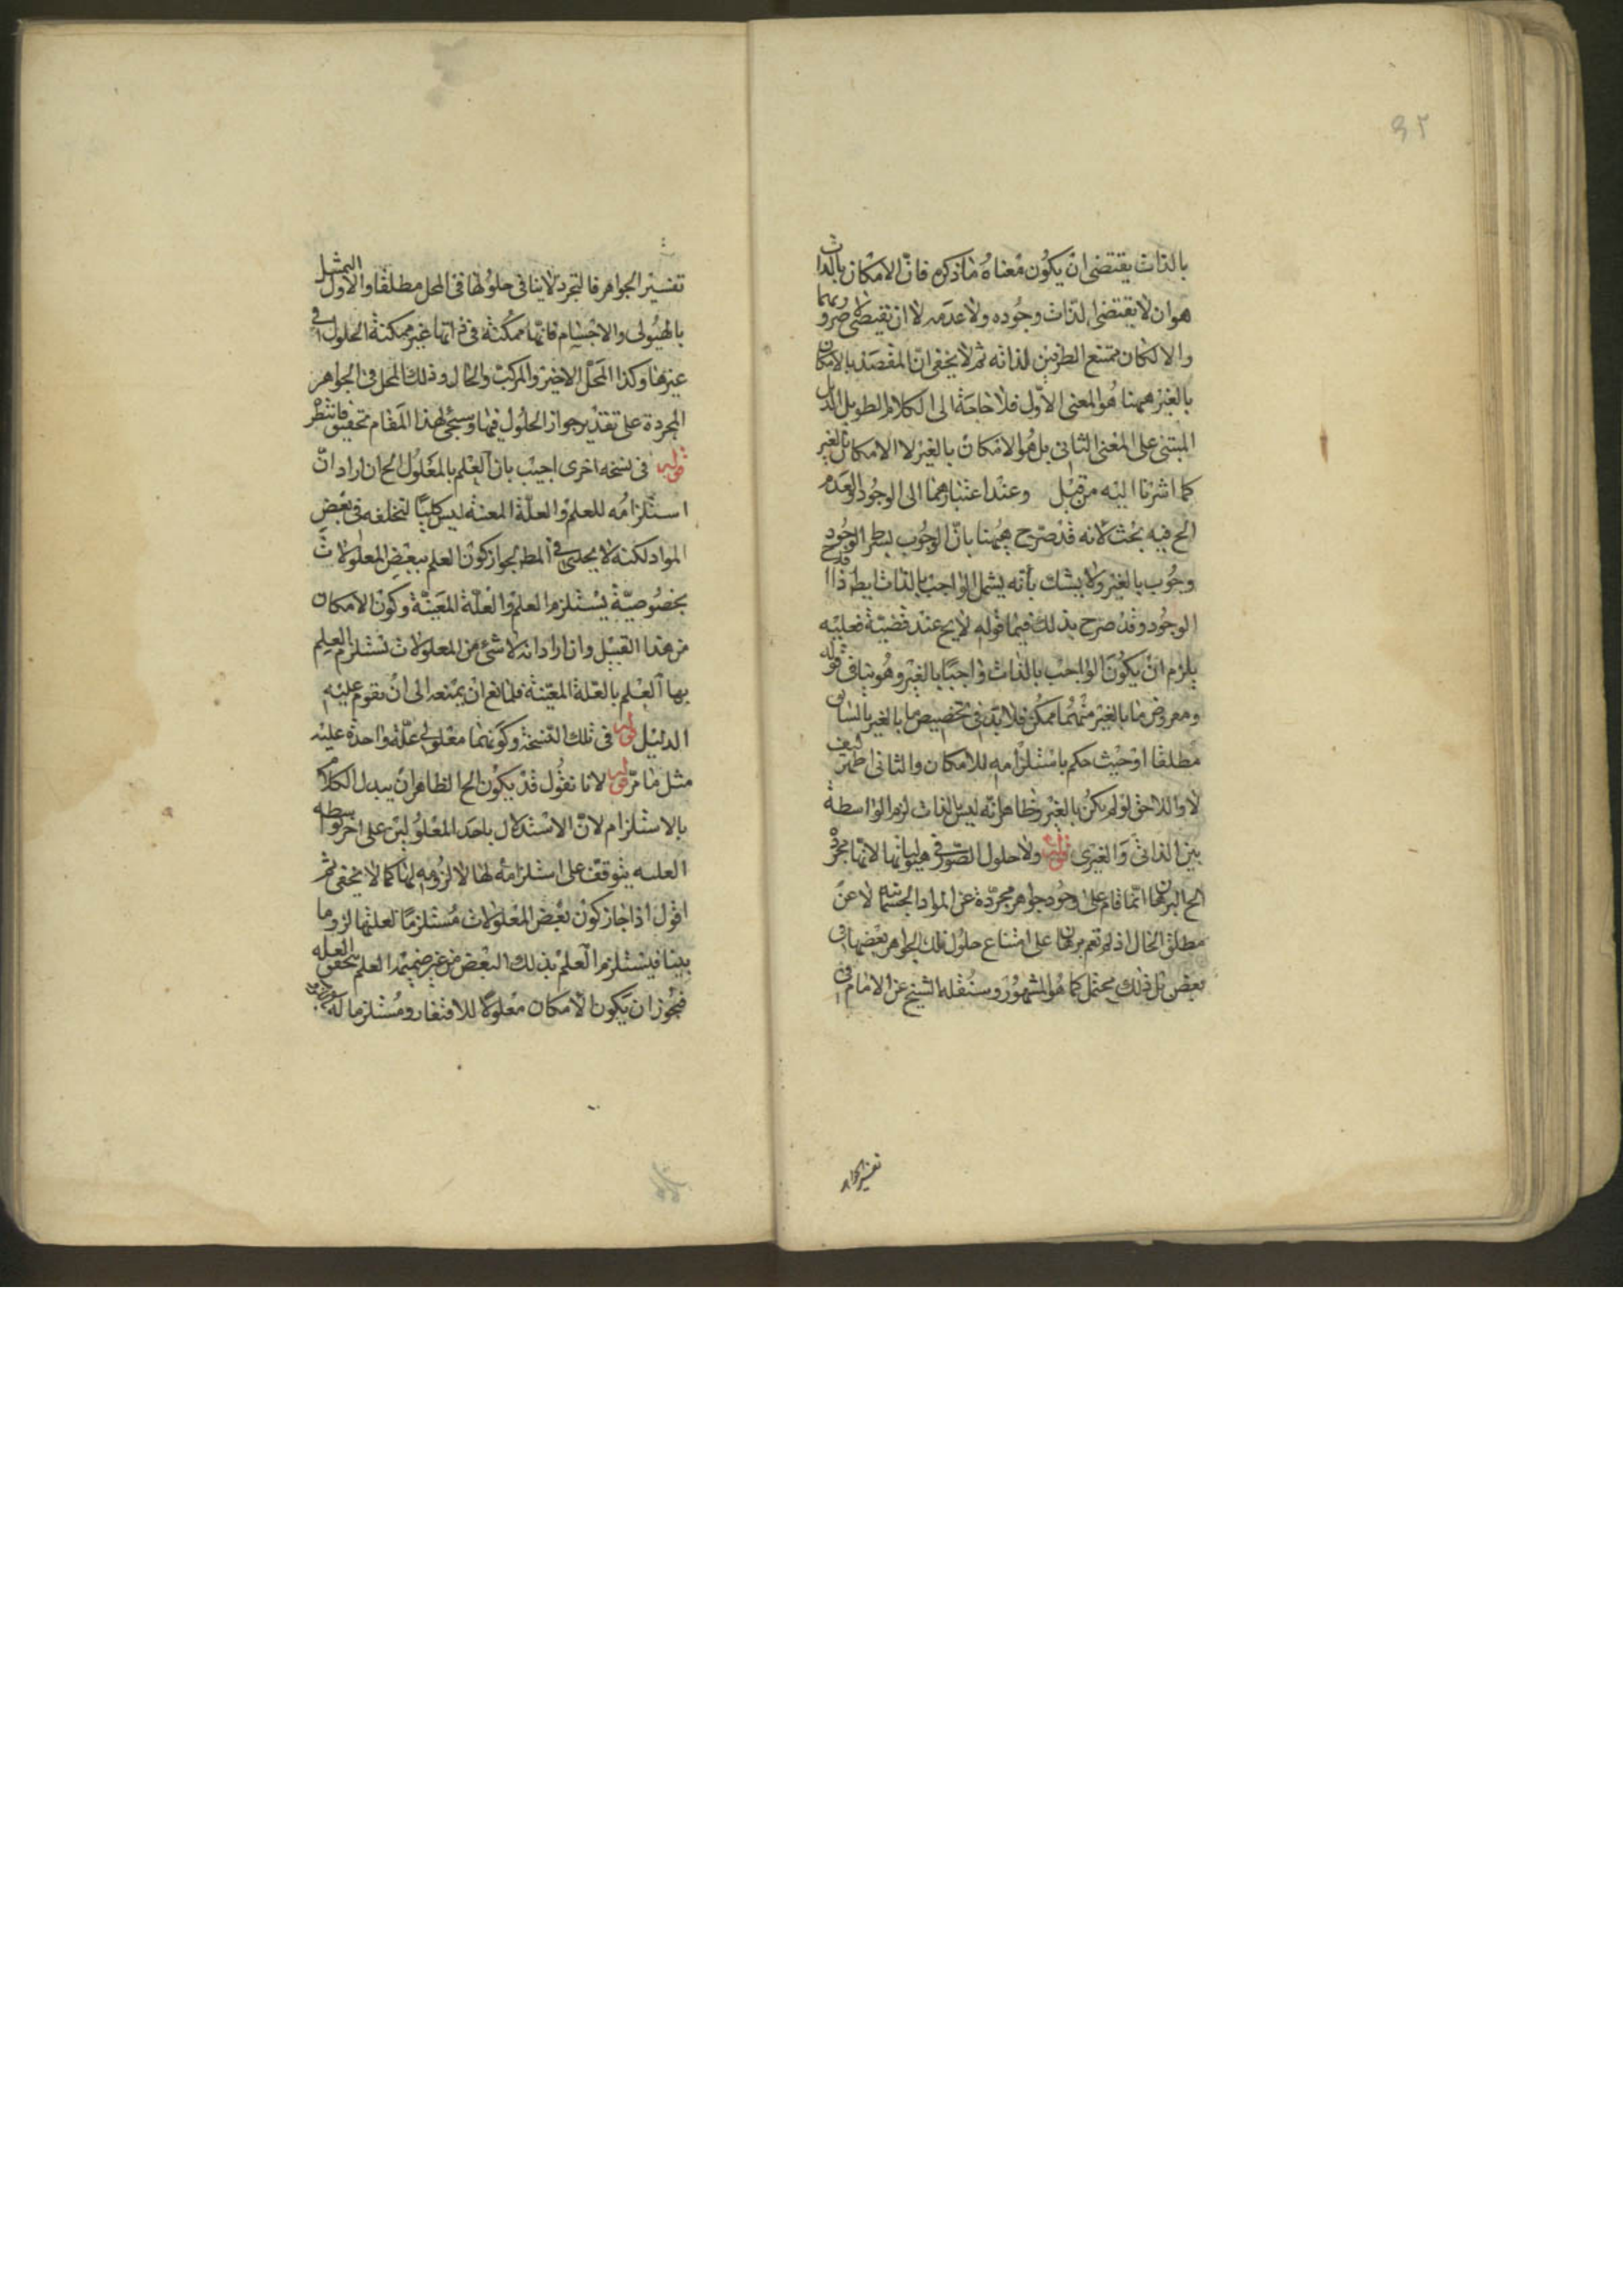 ٣٢
بالذات يقتضى ان يكون معناه ما ذكره فان الامكان بالذات
هو ان لا تقتضى الذات وجوده ولا عدمه لا ان تقتضى ضرورتهما
والا لكان ممتنع الطرفين لذاته ثم لا يخفى ان المقصد بالامكان
بالغير ههنا هو المعنى الاول فلا حاجة الى الكلام الطويل الذيل
المبتنى على المعنى الثانى بل هو الامكان بالغير لا الامكان بالغير
كما اشرنا اليه من قبل وعند اعتبارهما الى الوجود والعدم
الح فيه بحث لانه قد صرح ههنا بان الوجوب بشرط الوجود
وجوب بالغير ولا يشك بأنه يشمل الواجب بالذات
الوجود وقد صرح بذلك فيما قوله لا يح عند قضية فعليه
يلزم ان يكون الواجب بالذات واجبا بالغير وهو ينافى قوله
ومعروض ما بالغير منهما ممكن فلا بد فى تخصيص ما بالغير بالسابق
مطلقا او حيث حكم باستلزامه للامكان والثانى اظهر كيف
لا واللاحق لو لم يكن بالغير وظاهر انه ليس بالذات لزم الواسطة
بين الذاتى والغيرى قوله ولا حلول الصور فى هيولياتها لانها مجردة
الح البرهان انما قام على وجود جواهر مجردة عن المواد الجسمانية لا عن
مطلق الحال اذ لم تقم برهان على امتناع حلول تلك الجواهر بعضها فى
بعض بل ذلك محتمل كما هو المشهور وسنقله الشيخ عن الامام فى
تفسير الجواهر
تفسير الجواهر فالتجرد لا ينافى حلولها فى المحل مطلقا والاول التمثيل
بالهيولى والاجسام فانها ممكنة فى ذاتها غير ممكنة الحلول فى
غيرها وكذا المحل الاخير والمركب والحال وذلك المحل فى الجواهر
المجردة على تقدير جواز الحلول فيها وسيجئ لهذا المقام تحقيق فانتظر
قوله فى نسخة اخرى اجيب بان العلم بالمعلول الح ان اراد ان
استلزامه للعلم والعلة المعينة ليس كليا لتخلفه فى بعض
المواد لكنه لا يجدى فى المط لجواز كون العلم ببعض المعلولات
بخصوصية يستلزم العلم والعلة المعينة وكون الامكان
من هذا القبيل وان اراد انه لا شئ من المعلولات تستلزم العلم
بها العلم بالعلة المعينة فلمانع ان يمنعه الى ان يقوم عليه
الدليل قوله فى تلك النسخة وكونهما معلولى علة واحدة عليه
مثل ما مر قوله لانا نقول قد يكون الح الظاهر ان يبدل الكلام
بالاستلزام لان الاستدلال باحد المعلولين على اخر بواسطة
العلية يتوقف على استلزامه لها لا لزومه لها كما لا يخفى ثم
اقول اذا جاز كون بعض المعلولات مستلزما لعلتها لزوما
بينا فيستلزم العلم بذلك البعض من غير ضميمة العلم بتحقق العلة
فيجوز ان يكون الامكان معلولا للافتقار ومستلزما له